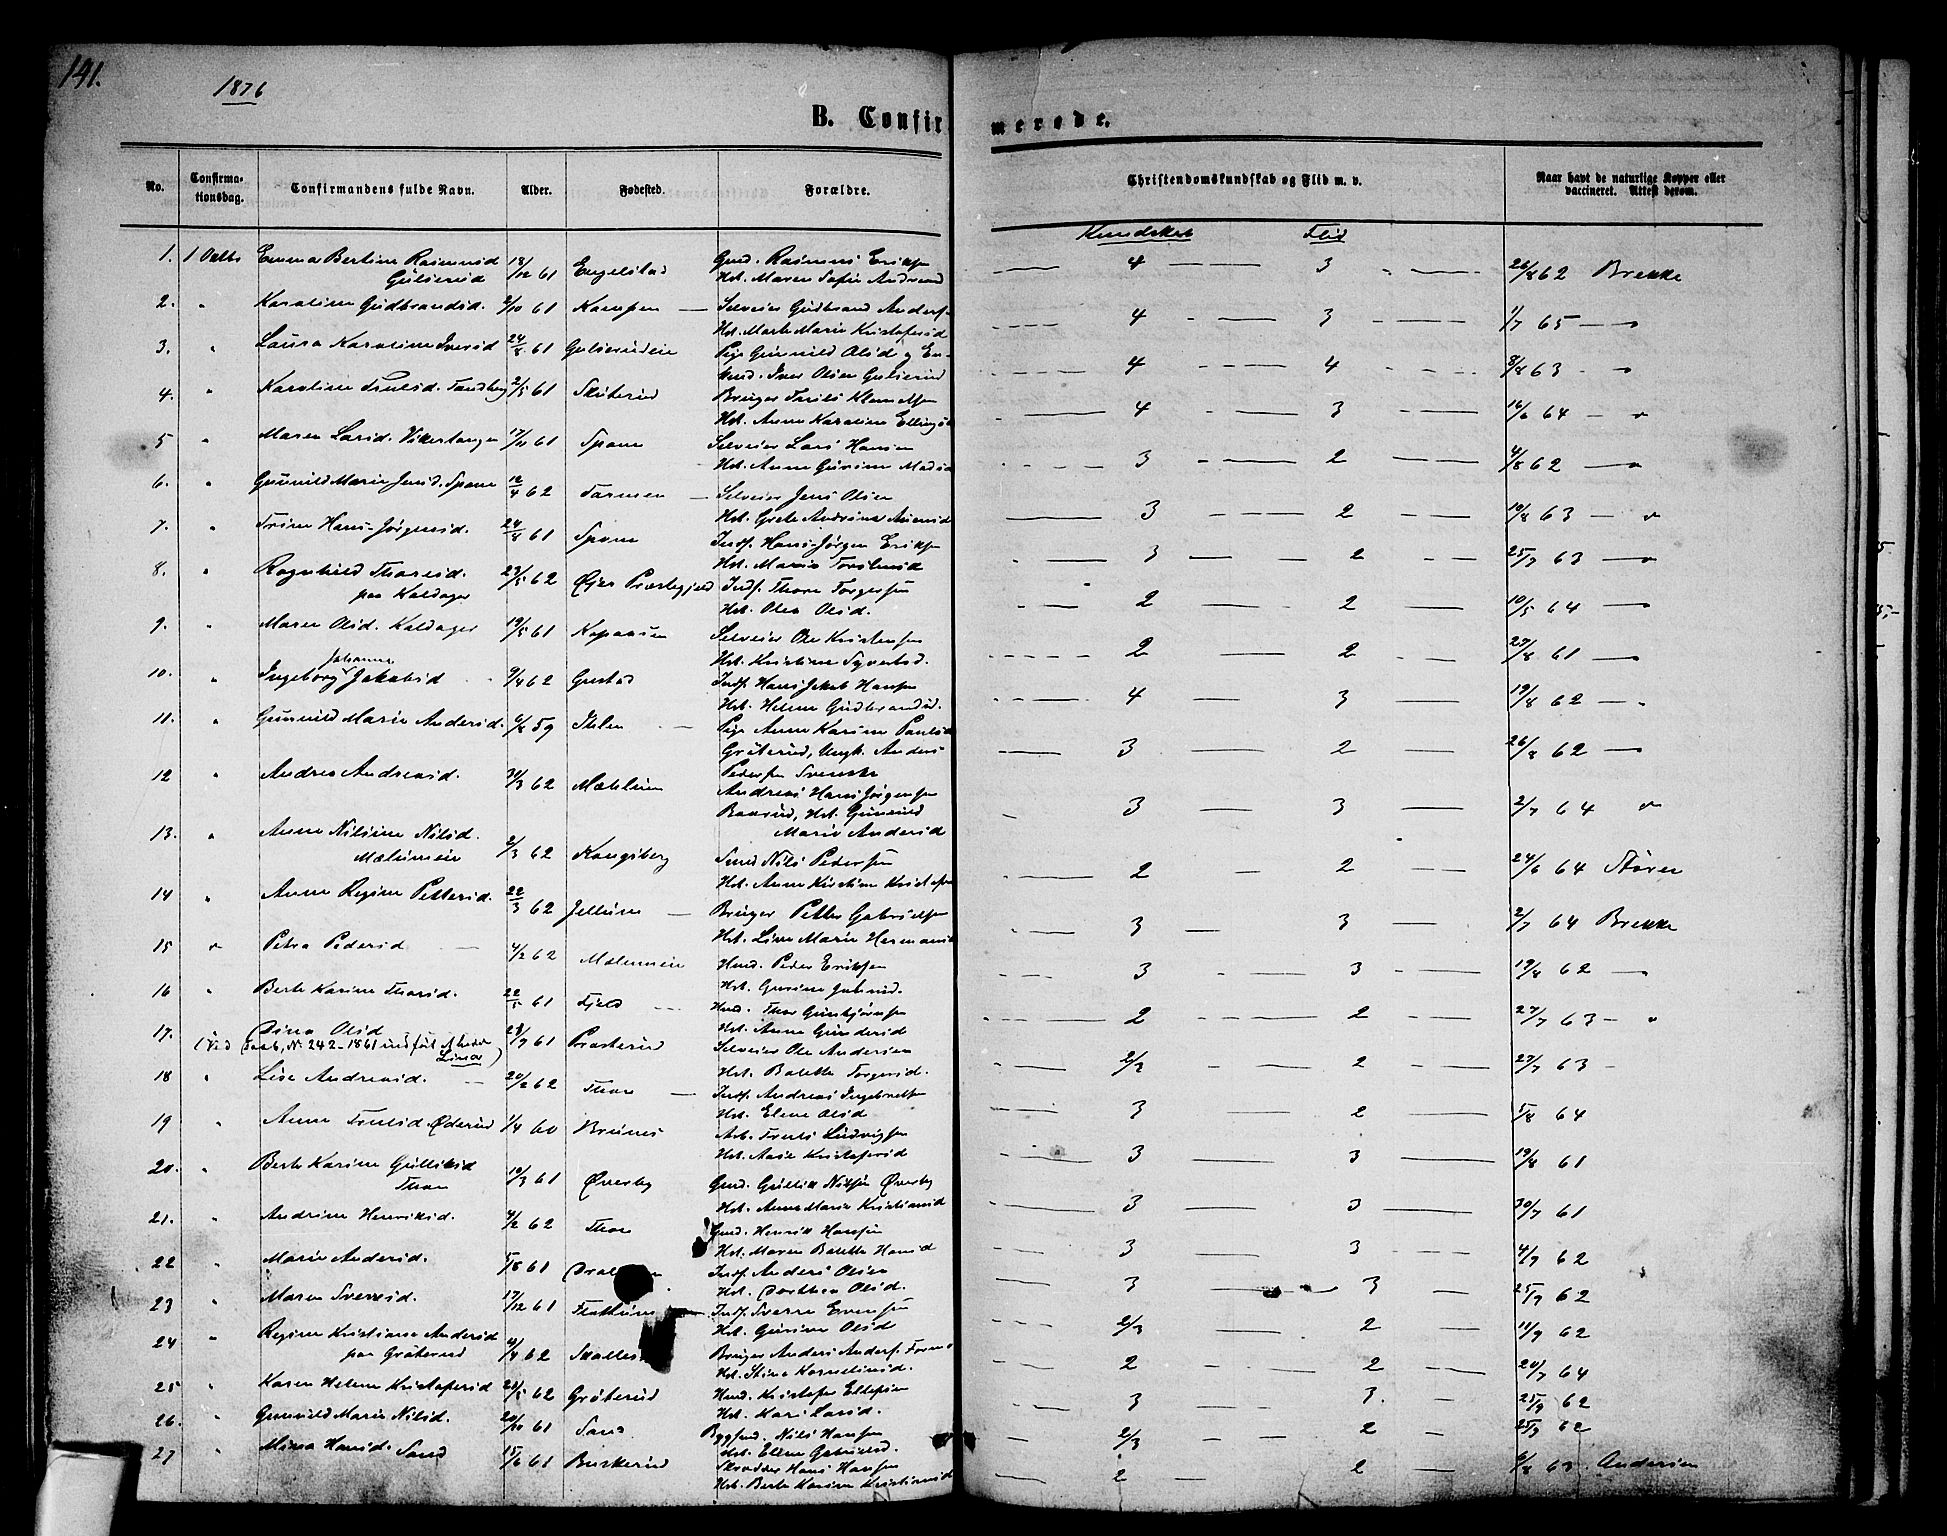 141.
1876
B. Confirmerede.
No. Confirmationsdag. Confirmandens fulde Navn. Alder. Fødested. Forældre. Christendomskundskab og Flid m. v. Naar havt de naturlige Kopper eller vaccineret. Attest derom.
Kundskab Flid
1. 1 Octb Emma Bertine Rasmusd 18/12 61 Engelstad Gmd. Rasmus Eriksen 4 3 26/8 62 Brekke
Gulserud Hst. Maren Sofie Andreasd
2. " Karoline Gudbrandsd. 2/10 61 Kampen Selveier Gudbrand Andersen 4 3 1/7 65 — "
Hst. Marte Marie Kristofersd
3. " Laura Karoline Iversd 24/8 61 Gulserudeie Pige Gunild Olsd og En- 4 4 8/8 63 - "
kmd. Iver Olsen Gulserud
4. " Karoline Trulsd. Sandberg 2/5 61 Skuterud Bruger Truls Klemetsen 4 3 16/6 64 — "
Hst. Anne Karoline Ellingsd
5 " Maren Larsd. Vikertangen 17/11 61 Spone Selveier Lars Hansen 3 2 4/8 62 — "
Hst. Anne Gurine Madsd
6. " Gunild Marie Jensd. Spone 12/4 62 Selveier Jens Olsen 3 2 19/8 63 — "
Hst. Grete Andrine
7. " Trine Hans-Jørgensd. 24/8 61 Spone Inds. Hans-Jørgen Eriksen 3 2 25/7 63 — "
Hst. Maria
8. " Ragnhild Thoresd. 23/5 62 Øier Præstegjeld Inds. Thore Torgersen 2 2 10/5 64 — "
paa Kaldager Hst. Olea Olsd.
9. " Maren Olsd. Kaldager 19/5 61 Kopaasen Selveier Ole Kristensen 2 2 27/8 61 — "
Hst. Kristine Syvertsd.
Johanne
10. " Ingeborg Jakobsd 9/4 62 Gustad Inds. Hans Jakob Hansen 4 3 19/8 62 — "
Hst. Helene Gudbrandsd.
11. " Gunild Marie Andersd. 6/8 59 Pige Anne Karine Paulsd 3 2 26/8 62 — "
Grøterud, Ungk. Anders
Pedersen Svenske
12 " Andrea Andreasd. 31/3 62 Mælum Andreas Hans Jørgensen 3 3 2/7 64 "
Baasrud, Hst. Gunild
Marie Andersd
13. " Anne Nilsine Nilsd. 2/3 62 Kongsberg Smed Nils Pedersen 2 2 24/6 64 Støren
Mælumeie Hst. Anne Kirstine Kristofersd
14 " Anne Regine Pettersd. 22/3 62 Jellum Bruger Petter Gabrielsen 3 3 2/7 64 Brekke
Hst. Line Marie Hermansd
15 " Petra Pedersd 4/2 62 Mælumeie Hmd. Peder Eriksen 3 3 19/8 62 — "
Hst. Gurine Jakobsd.
16 " Berte Karine Thorsd. 22/5 61 Fjeld Hmd. Thor Gunbjørnsen 2 2 27/7 63 — "
Hst. Anne Gundersd
17. Dina Olsd 28/7 61 Prosterud Selveier Ole Andersen 2/3 2 27/7 63 -
(Ved Daab, No 242-1861 indført Lina) Hst. Bolette Torgersd.
18 " Lise Andreasd. 20/2 62 Thon Inds. Andreas Ingebretsen 3 2 5/8 64
Hst. Elene Olsd
19 " Anne Trulsd Øderud 1/4 60 Brunes Arb. Truls Ludvigsen 3 3 19/8 61
Hst. Aase Kristofersd
20. " Berte Karine Gulliksd 19/3 61 Øverby Gmd. Gullik Nilsen Øverby 3 3 30/7 61
Thon Hst. Anne Marie Kristiansd
21. " Andrine Henriksd. 4/2 62 Thon Gmd. Henrik Hansen 3 3 4/9 62
Hst. Maren Bolette Hansd
22 " Marie Andersd. 5/8 61 Inds. Anders Olsen 3 3 25/9 62
Hst. Dorthea Olsd.
23 " Maren Sveresd. 17/12 61 Inds. Sverre Evensen 2/3 2 11/9 62
Hst. Gurine Olsd
24 " Regine Kristiane Andersd 4/4 62 Bruger Anders Anders. 2 2 20/7 64
paa Grøterud Hst. Stina Korneliusd.
25 " Karen Helene Kristofersd 23/5 62 Grøterud Hmd. Kristofer Ellefsen 3 3. 25/9 62
Hst. Kari Larsd.
26. " Gunild Marie Nilsd. 20/10 61 Sand Bygsmd. Nils Hansen 2/3 2 25/9 62
Hst. Elene Gabrielsd.
27 " Mina Hansd. Sand 15/6 61 Buskerud Skrædder Hans Hansen 2 2 6/8 63. Andersen
Hst. Berte Karine Kristiansd